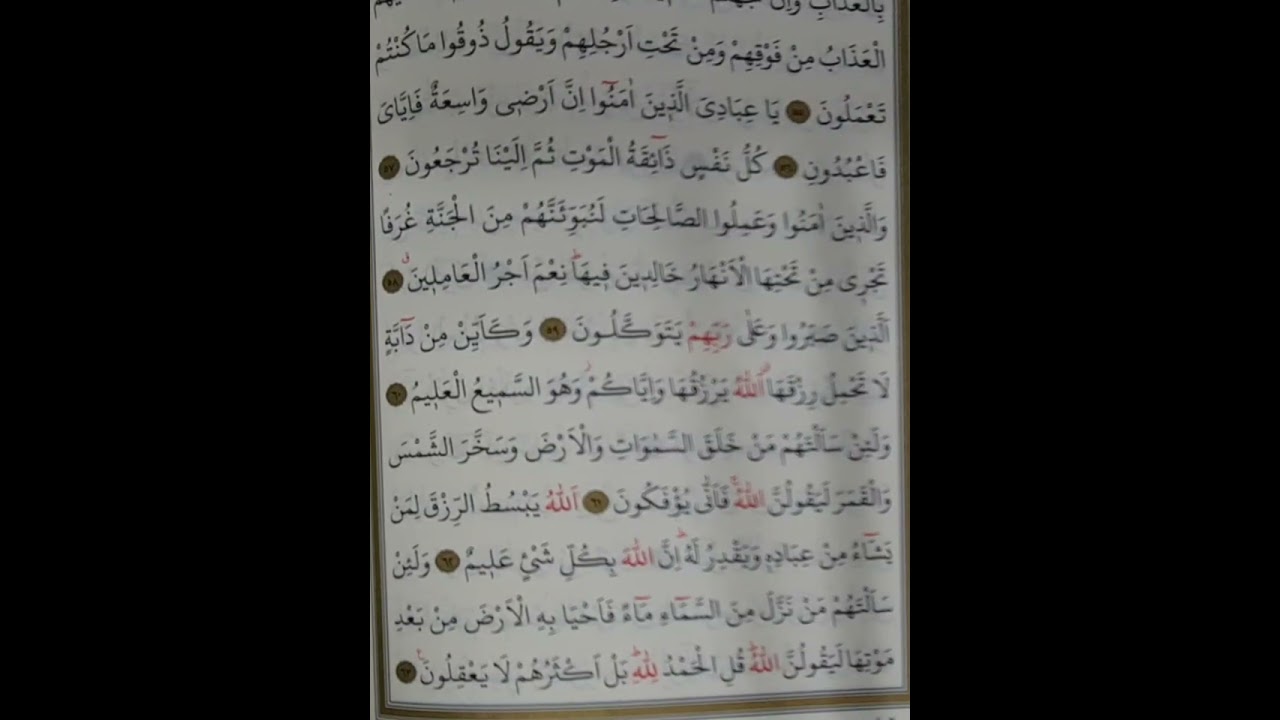 بِالْعَذَابِ وَاِنَّ
الْعَذَابُ مِنْ فَوْقِهِمْ وَمِنْ تَحْتِ اَرْجُلِهِمْ وَيَقُولُ ذُوقُوا مَا كُنْتُمْ
تَعْمَلُونَ ٥٥ يَا عِبَادِىَ الَّذ۪ينَ اٰمَنُٓوا اِنَّ اَرْض۪ى وَاسِعَةٌ فَاِيَّاىَ
فَاعْبُدُونِ ٥٦ كُلُّ نَفْسٍ ذَٓائِقَةُ الْمَوْتِ ثُمَّ اِلَيْنَا تُرْجَعُونَ ٥٧
وَالَّذ۪ينَ اٰمَنُوا وَعَمِلُوا الصَّالِحَاتِ لَنُبَوِّئَنَّهُمْ مِنَ الْجَنَّةِ غُرَفًا
تَجْر۪ى مِنْ تَحْتِهَا الْاَنْهَارُ خَالِد۪ينَ ف۪يهَاۜ نِعْمَ اَجْرُ الْعَامِل۪ينَۗ ٥٨
اَلَّذ۪ينَ صَبَرُوا وَعَلٰى رَبِّهِمْ يَتَوَكَّلُونَ ٥٩ وَكَاَيِّنْ مِنْ دَٓابَّةٍ
لَا تَحْمِلُ رِزْقَهَاۗ اَللّٰهُ يَرْزُقُهَا وَاِيَّاكُمْۘ وَهُوَ السَّم۪يعُ الْعَل۪يمُ ٦٠
وَلَئِنْ سَاَلْتَهُمْ مَنْ خَلَقَ السَّمٰوَاتِ وَالْاَرْضَ وَسَخَّرَ الشَّمْسَ
وَالْقَمَرَ لَيَقُولُنَّ اللّٰهُۚ فَاَنّٰى يُؤْفَكُونَ ٦١ اَللّٰهُ يَبْسُطُ الرِّزْقَ لِمَنْ
يَشَٓاءُ مِنْ عِبَادِه۪ وَيَقْدِرُ لَهُۜ اِنَّ اللّٰهَ بِكُلِّ شَيْءٍ عَل۪يمٌ ٦٢ وَلَئِنْ
سَاَلْتَهُمْ مَنْ نَزَّلَ مِنَ السَّمَٓاءِ مَٓاءً فَاَحْيَا بِهِ الْاَرْضَ مِنْ بَعْدِ
مَوْتِهَا لَيَقُولُنَّ اللّٰهُۜ قُلِ الْحَمْدُ لِلّٰهِۜ بَلْ اَكْثَرُهُمْ لَا يَعْقِلُونَ۟ ٦٣